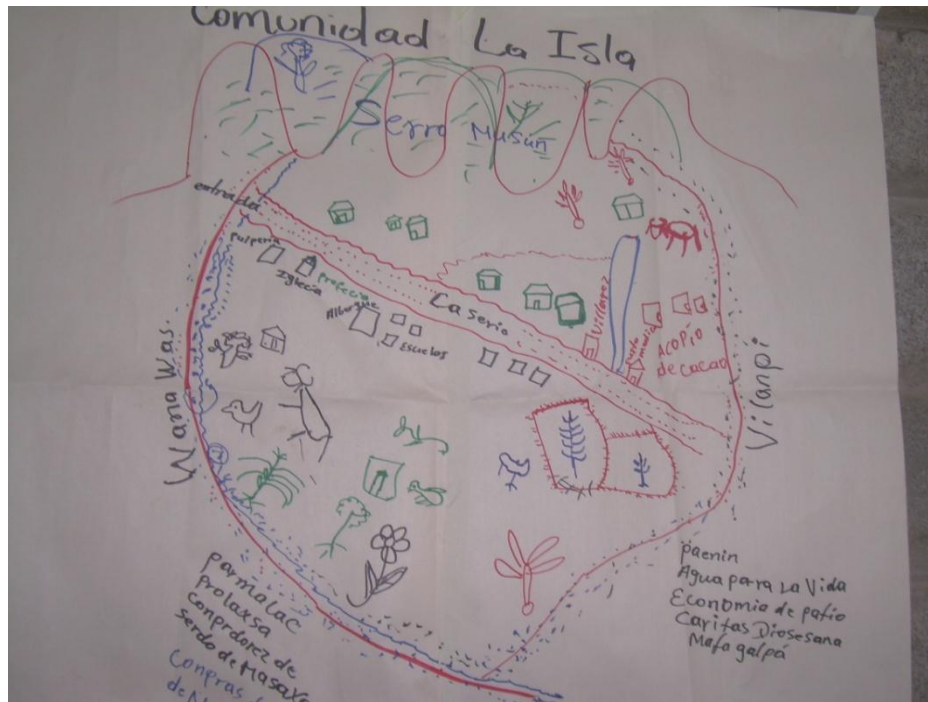 Comunidad La Isla
Serro Musun
entrada
Pulperia
Iglecia
profecia
Albergue
Escuelas
Caserio
Villarez
Puesto
medico
ACOPIO
de cacao
Wana Was
Vilanpi
parmalac
prolaxsa
conprdorez de
serdo de Masaya
Conpras
paenin
Agua para La Vida
Economia de patio
Caritas Diosesana
Mafagalpá